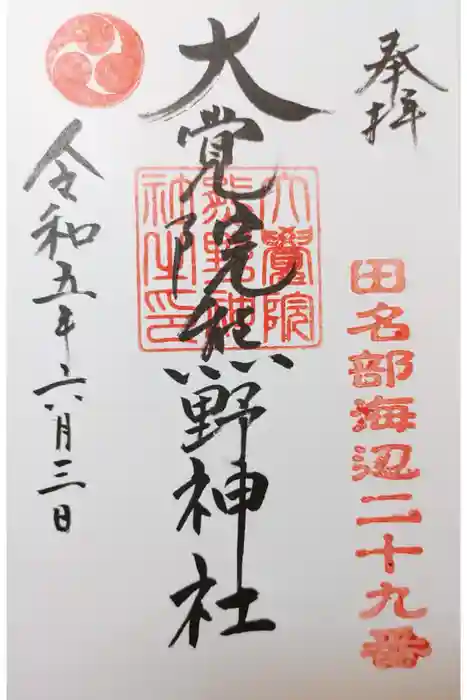 奉拝
田名部海辺二十九番
大覚院熊野神社
大覺院熊野神社之印
令和五年六月三日